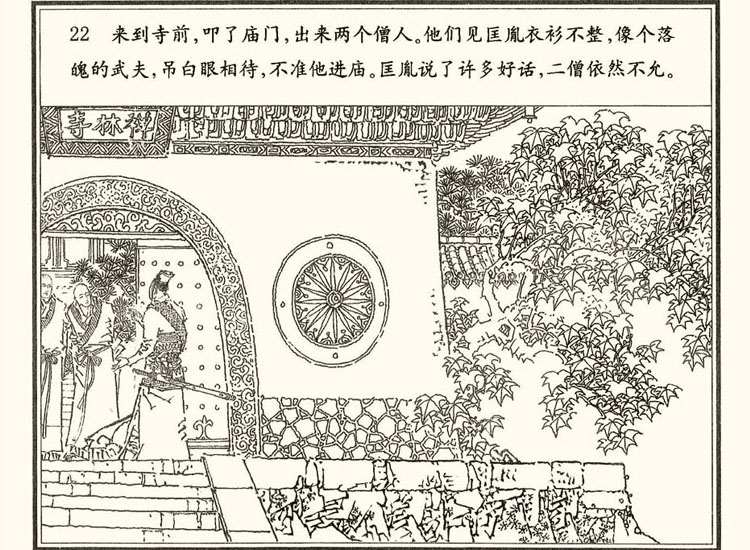 22 来到寺前，叩了庙门，出来两个僧人。他们见匡胤衣衫不整，像个落
魄的武夫，吊白眼相待，不准他进庙。匡胤说了许多好话，二僧依然不允。
寺林禅